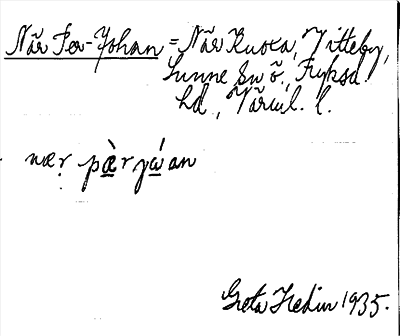 När Per-Johan = När Ruota, Vitteby,
Sunne sn ö., Fryksd.
hd., Värml. l.
nær pær yåan
Greta Hedin 1935.